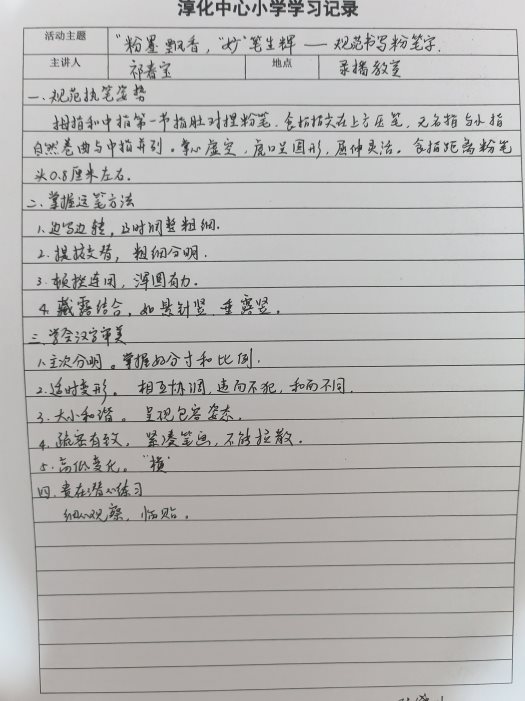 淳化中心小学学习记录
活动主题 "粉墨飘香,"妙"笔生辉 —— 规范书写粉笔字.
主讲人 祁春宝 地点 录播教室
一.规范执笔姿势
拇指和中指第一节指肚对捏粉笔.食指指尖在上方压笔,无名指与小指
自然卷曲与中指并列。掌心虚空,虎口呈圆形,屈伸灵活。食指距离粉笔
头0.8厘米左右.
二.掌握运笔方法
1.边写边转,及时调整粗细.
2.提按交替,粗细分明.
3.顿挫连用,浑圆有力.
4.藏露结合,如悬针竖.垂露竖。
三.学会汉字审美
1.主次分明。掌握好分寸和比例.
2.适时变形. 相互协调,违而不犯,和而不同.
3.大小和谐。呈现包容姿态.
4.疏密有致,紧凑笔画,不能拉散.
5.高低变化。"横"
四.贵在潜心练习
细心观察,临贴。